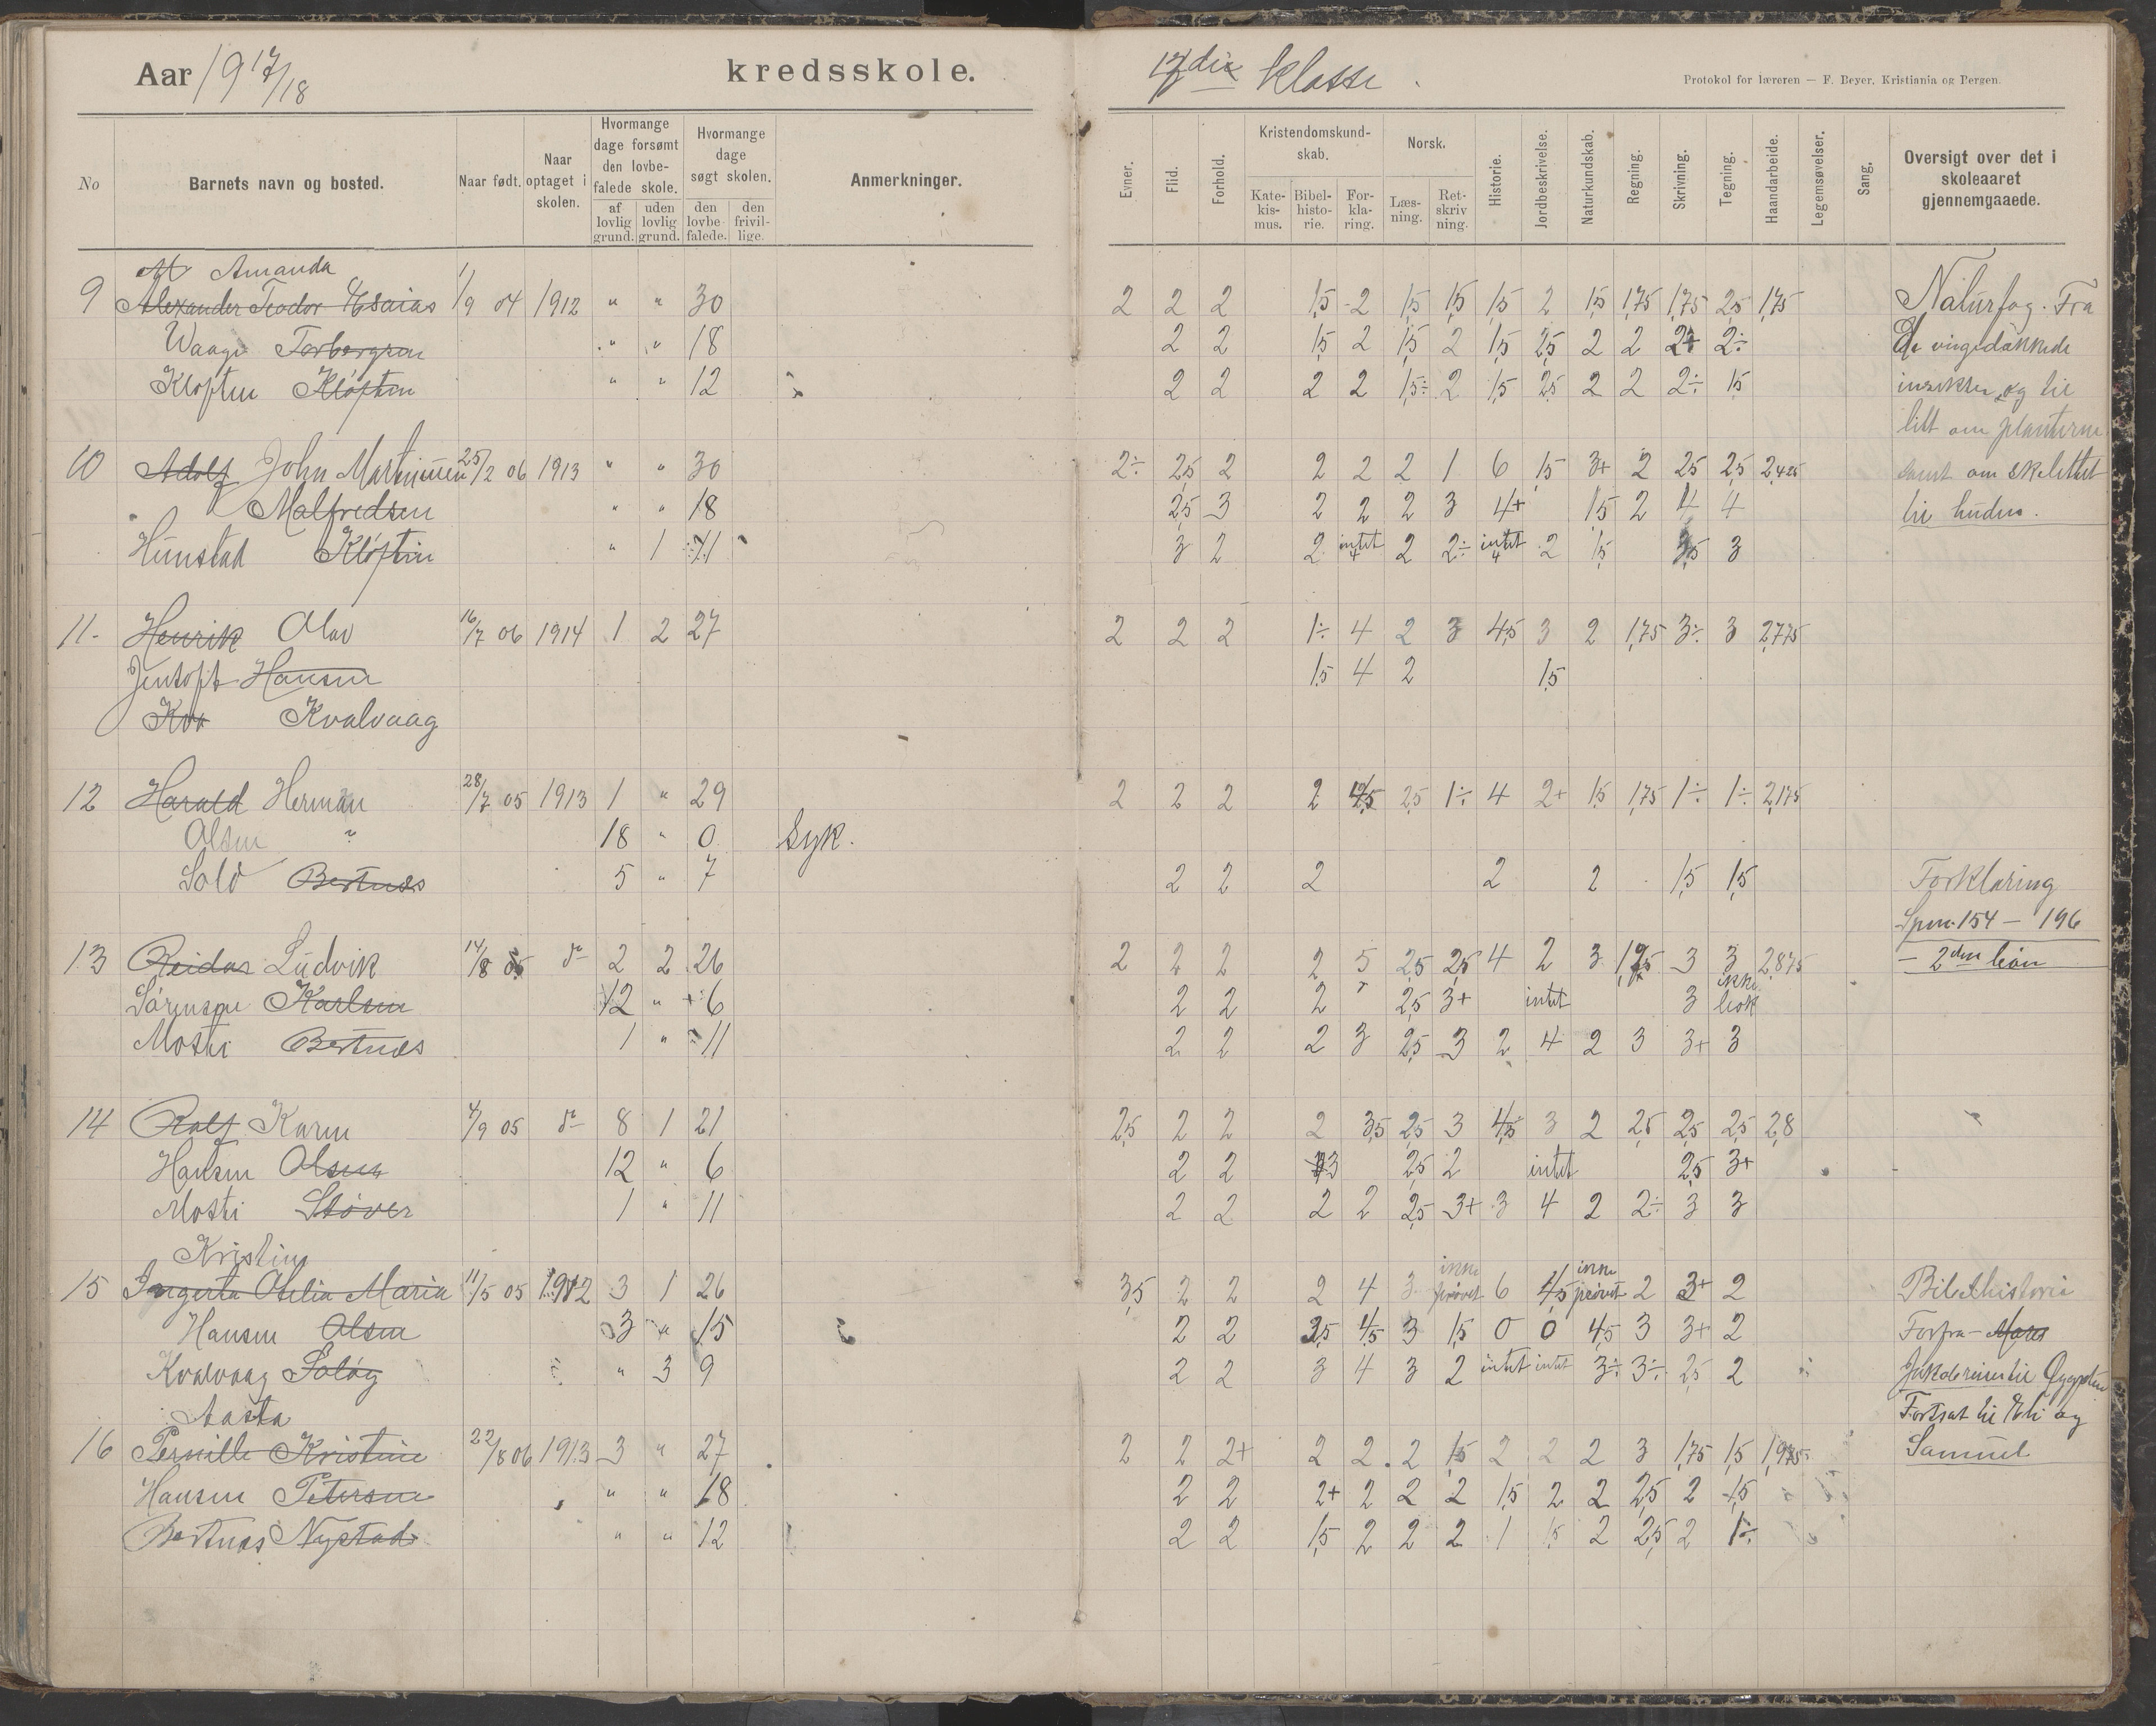 Aar 1917/18 kredsskole. klasse.
Protokol for læreren — F. Beyer, Kristiania og Bergen.
No Barnets navn og bosted. Naar født. Naar optaget i skolen. Hvormange dage forsømt den lovbefalede skole. af lovlig grund. uden lovlig grund. Hvormange dage søgt skolen. den lovbefalede. den frivillige. Anmerkninger.
Evner. Flid. Forhold. Kristendomskundskab. Katekismus. Bibelhistorie. Forklaring. Norsk. Læsning. Retskrivning. Historie. Jordbeskrivelse. Naturkundskab. Regning. Skrivning. Tegning. Haandarbeide. Legemsøvelser. Sang. Oversigt over det i skoleaaret gjennemgaaede.
Amanda
9 Alexander Teodor Esaias 1/9 04 1912 " " 30 2 2 2 1,5 2 1,5 1,5 1,5 2 1,5 1,75 1,75 2,5 1,75 Naturfag. Fra
Waage Torbergsen " " 18 2 2 1,5 2 1,5 2 1,5 2,5 2 2 2+ 2÷ de vingedækkede
Kloften Kløften " " 12 2 2 2 2 1,5÷ 2 1,5 2,5 2 2 2÷ 1,5 insekter og til
litt om planterne
10 Adolf John Martiniusen 25/2 06 1913 " " 30 2÷ 2,5 2 2 2 2 1 6 1,5 3+ 2 2,5 2,5 2,425 samt om skelettet
Malfredsen " " 18 2,5 3 2 2 2 3 4+ 1,5 2 4 4 til huden.
Hunstad Kløftin " 1 11 3 2 2 intet 4 2 2÷ intet 4 2 1,5 3,5 3
11. Henrik Olav 16/7 06 1914 1 2 27 2 2 2 1÷ 4 2 3 4,5 3 2 1,75 3÷ 3 2,775
Jentoft Hansen 1,5 4 2 1,5
Kva Kvalvaag
12 Harald Herman 28/7 05 1913 1 " 29 2 2 2 2 2,5 1÷ 4 2+ 1,5 1,75 1÷ 1÷ 2,175
Olsen " 18 " 0 Syk.
Solø Bertnæs 5 " 7 2 2 2 2 2 1,5 1,5 Forklaring
Spm. 154 – 196
13 Reidar Ludvik 14/8 05 do 2 2 26 2 2 2 2 5 2,5 2,5 4 2 3 1,75 3 3 2,875 – 2den
Sørensen Karlsen 12 " 6 2 2 2 2,5 3+ intet 3 ikke bok
Moshi Bertnæs 1 " 11 2 2 2 3 2,5 3 2 4 2 3 3+ 3
14 Rolf Karen 4/9 05 do 8 1 21 2,5 2 2 2 3,5 2,5 3 4,5 3 2 2,5 2,5 2,5 2,8
Hansen Olsen 12 " 6 2 2 3 2,5 2 intet 2,5 3+
Moshi Støver 1 " 11 2 2 2 2 2,5 3+ 3 4 2 2÷ 3 3
Kristine
15 Ingerta Otelia Maria 11/5 05 1912 3 1 26 3,5 2 2 2 4 3 prøvet 6 4,5 prøvet 2 3+ 2 Bibelhistorie
Hansen Olsen 3 " 15 2 2 2,5 4,5 3 1,5 0 0 4,5 3 3+ 2 Forfra –
Kvalvaag Soløy " 3 9 2 2 3 4 3 2 intet intet 3÷ 3÷ 2,5 2 Jakobs reise til Ægypten
Aasta Fortsat til Eli og
16 Pernille Kristine 22/8 06 1913 3 " 27 2 2 2+ 2 2 2 1,5 2 2 2 3 1,75 1,5 1,975 Samuel
Hansen Petersen " " 18 2 2 2+ 2 2 2 1,5 2 2 2,5 2 1,5
Bertnæs Nystad " " 12 2 2 1,5 2 2 2 1 1,5 2 2,5 2 1÷